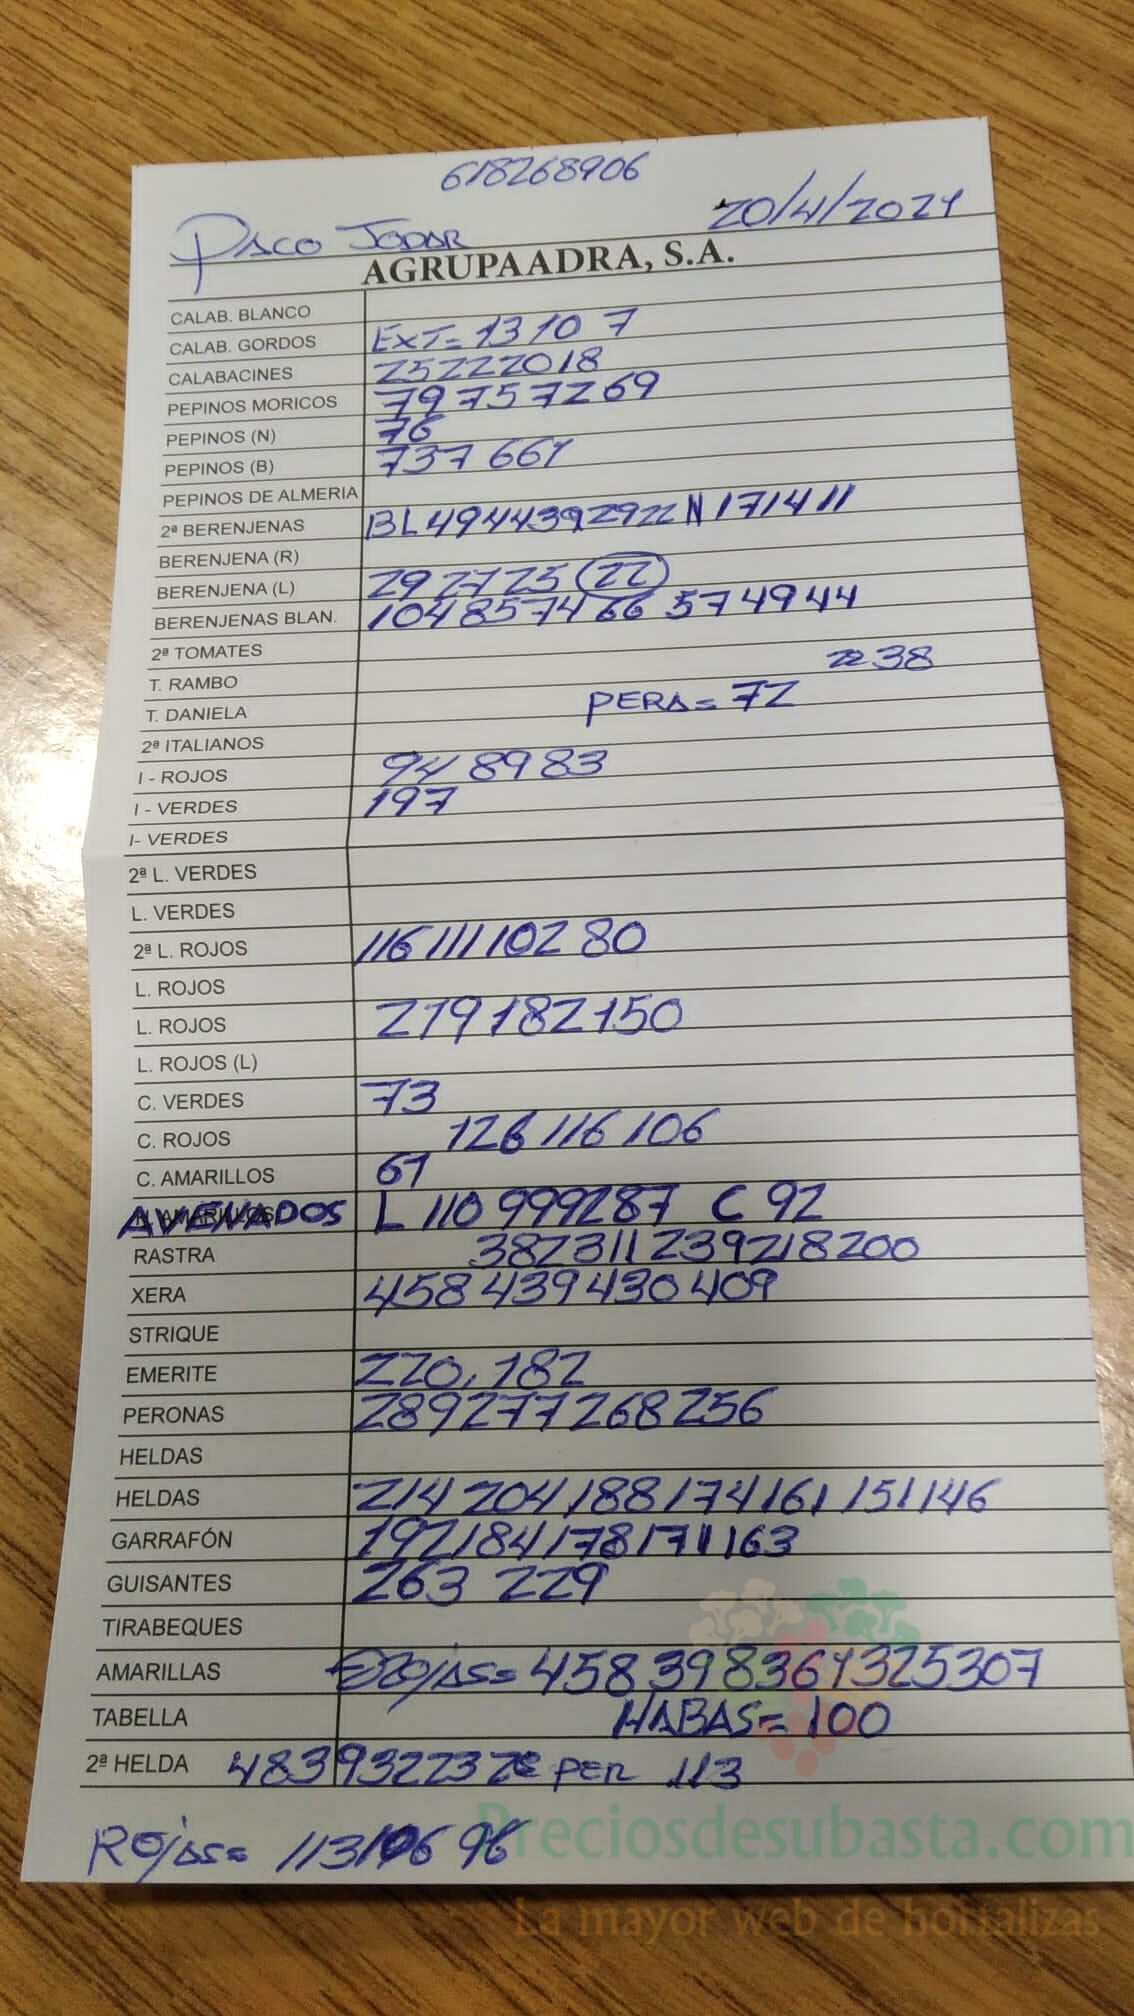 618268906
PACO JODAR 20/4/2021
AGRUPAADRA, S.A.
CALAB. BLANCO
CALAB. GORDOS EXT= 13 10 7
CALABACINES 25222018
PEPINOS MORICOS 7975 57 269
PEPINOS (N) 76
PEPINOS (B) 737 661
PEPINOS DE ALMERIA
2ª BERENJENAS BL 4944392922 N 171411
BERENJENA (R)
BERENJENA (L) 292725 (22)
BERENJENAS BLAN. 10485 74 66 57 4944
2ª TOMATES
T. RAMBO 38
T. DANIELA PERA= 72
2ª ITALIANOS
I - ROJOS 94 89 83
I - VERDES 197
I- VERDES
2ª L. VERDES
L. VERDES
2ª L. ROJOS 116 111 102 80
L. ROJOS
L. ROJOS 219 182 150
L. ROJOS (L)
C. VERDES 73
C. ROJOS 126 116 106
C. AMARILLOS 61
AVENADOS L 110 999287 C 92
RASTRA 382311239218200
XERA 458 439 430 409
STRIQUE
EMERITE 220, 182
PERONAS 289277268256
HELDAS
HELDAS 214 204 188 174 161 151 146
GARRAFÓN 192 184 178 171 163
GUISANTES 263 229
TIRABEQUES
AMARILLAS ROjAS= 458398361325307
TABELLA HABAS= 100
2ª HELDA 4839322372ª PER 113
ROjAS= 113106 96
Preciosdesubasta.com
La mayor web de hortalizas